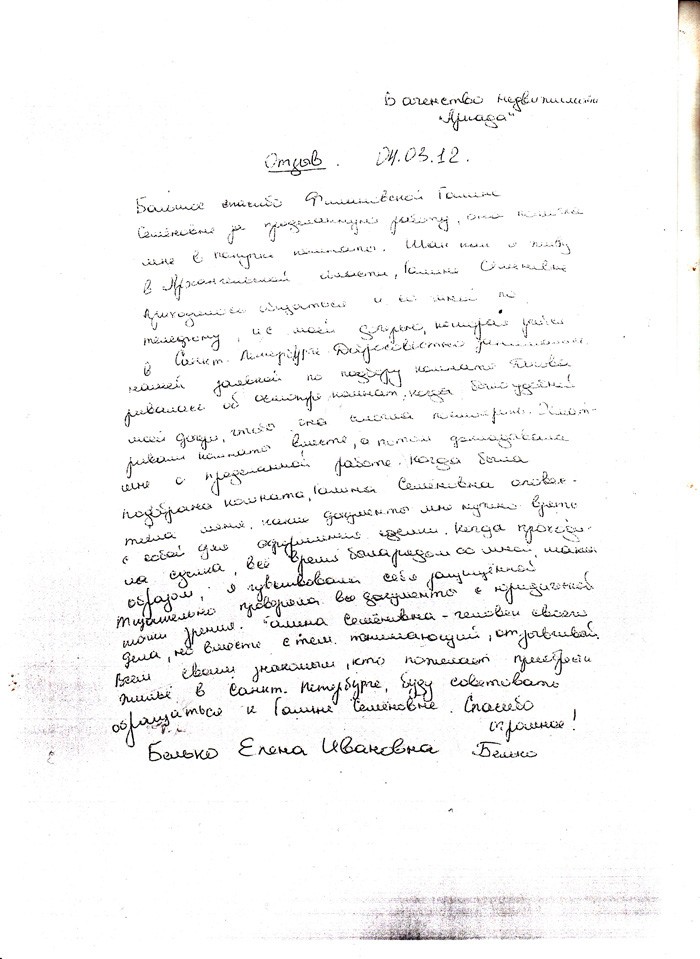 В агенство недвижимости
"Ариада"
Отзыв. 04.03.12.
Большое спасибо Филипповской Галине
Семёновне за проделанную работу, она помогла
мне в покупке комнаты. Так как я живу
в Архангельской области, Галине Семёновне
приходилось общаться и со мной по
телефону, и с моей дочерью, которая учится
в Санкт-Петербурге. Добросовестно занималась
нашей заявкой по подбору комнаты. Догова
ривалась об осмотре комнат, когда было удобно
моей дочери, чтобы она смогла посмотреть. Осмат-
ривали комнаты вместе, а потом докладывала
мне о проделанной работе. Когда была
подобрана комната, Галина Семёновна опове-
стила меня, какие документы мне нужно взять
с собой для оформления сделки. Когда проходи-
ла сделка, всё время была рядом со мной, таким
образом, я чувствовала себя защищённой
Тщательно проверила все документы с юридической
точки зрения. Галина Семёновна - человек своего
дела, но вместе с тем понимающий, отзывчивый.
Всем своим знакомым, кто пожелает приобрести
жильё в Санкт-Петербурге, буду советовать
обращаться к Галине Семёновне. Спасибо
огромное!
Белько Елена Ивановна Белько